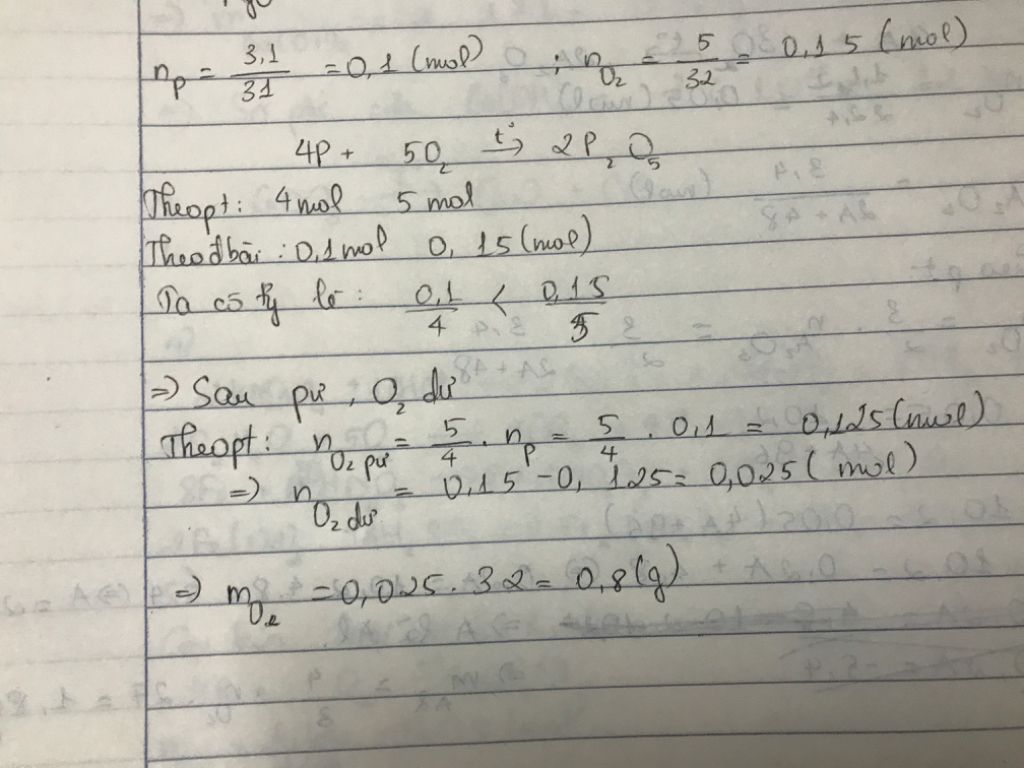 n_P = 3,1/31 = 0,1 (mol) ; n_O₂ = 5/32 = 0,15 (mol)
4P + 5O₂ t°→ 2P₂O₅
Theo pt: 4 mol 5 mol
Theo đbài: 0,1 mol 0,15 (mol)
Ta có tỷ lệ: 0,1/4 < 0,15/5
=> Sau pư, O₂ dư
Theo pt: n_O₂ pư = 5/4 . n_P = 5/4 . 0,1 = 0,125 (mol)
=> n_O₂ dư = 0,15 - 0,125 = 0,025 (mol)
=> m_O₂ = 0,025 . 32 = 0,8 (g)